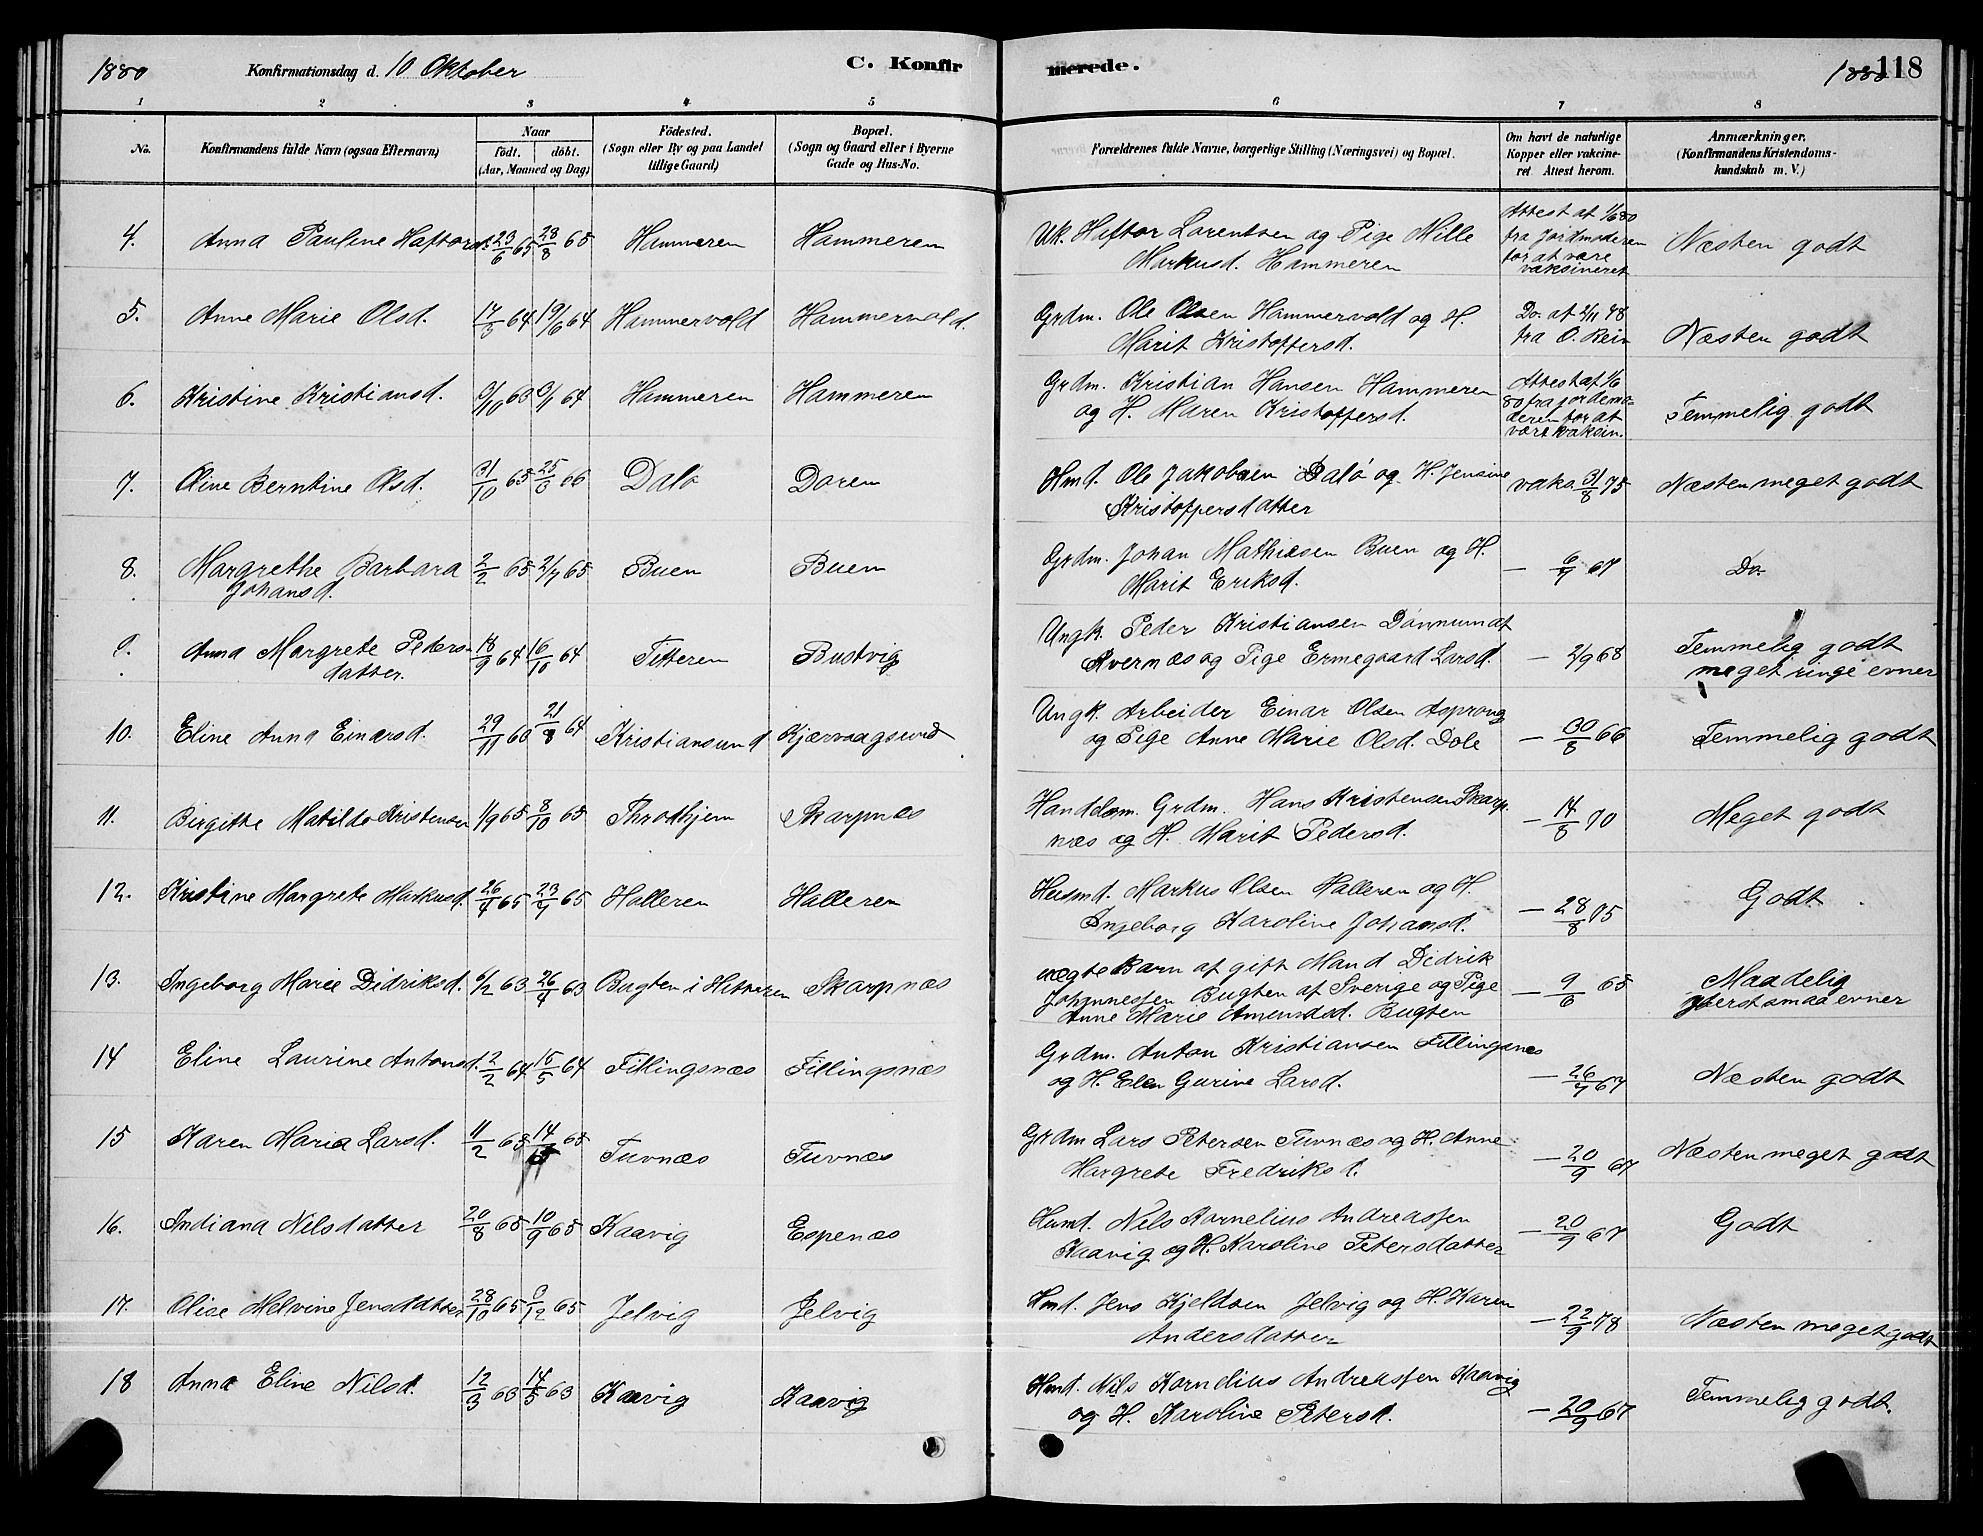 1880 Konfirmationsdag d. 10 Oktober C. Konfir merede. 1880 118
1 2 3 4 5 6 7 8
No. Konfirmandens fulde Navn (ogsaa Efternavn) Naar født. døbt. (Aar, Maaned og Dag) Fødested. (Sogn eller By og paa Landet tillige Gaard) Bopæl. (Sogn og Gaard eller i Byerne Gade og Hus-No. Forældrenes fulde Navne, borgerlige Stilling (Næringsvei) og Bopæl. Om havt de naturlige Kopper eller vakcineret Attest herom. Anmærkninger. (Konfirmandens Kristendomskundskab m. V.)
4. Anna Pauline Haftorsd. 23/6 65 28/8 65 Hammeren Hammeren Uk. Haftor Lorentsen og Pige Mille
Markusd. Hammeren
Attest af 1/6 80
fra Jordmoderen
for at være
vaksineret
Næsten godt
5. Anne Marie Olsd. 17/3 64 19/6 64 Hammervold Hammervold. Grdm. Ole Olsen Hammervold og H.
Marit Kristoffersd.
Do. af 2/11 78
fra O. Rein
Næsten godt
6. Kristine Kristiansd. 3/10 63 3/1 64 Hammeren Hammeren Grdm. Kristian Hansen Hammeren
og H. Maren Kristoffersd.
Attest af 1/6
80 fra jordemo-
deren for at
være vaksin.
Temmelig godt
7. Oline Berntine Olsd. 31/10 65 25/3 66 Dalø Doren Hmd. Ole Jakobsen Dalø og H. Jensine
Kristoffersdatter
vaks. 31/8 75 Næsten meget godt
8. Margrethe Barbara
Johansd.
2/2 65 2/7 65 Buen Buen Grdm. Johan Mathiesen Buen og H.
Marit Eriksd.
— 6/7 67 Do.
9. Anna Margrete Peders-
datter.
18/9 64 16/10 64 Titteren Bustvig Ungk. Peder Kristiansen Dønnumat
Kvernæs og Pige Ermegaard Larsd.
— 2/9 68 Temmelig godt
meget ringe evner
10. Eline Anna Einarsd. 29/11 63 21/8 64 Kristiansund Kjærvaagsund Ungk. Arbeider Einar Olsen Asprong
og Pige Anne Marie Olsd. Dole
— 30/8 66 Temmelig godt
11. Birgitte Matilde Kristensen 1/9 65 8/10 65 Throthjem Skarpnæs Handelsm. Grdm. Hans Kristensen Skarp
næs og H. Marit Pedersd.
— 14/8 70 Meget godt
12. Kristine Margrete Markusd. 26/4 65 23/7 65 Halleren Halleren Husmd. Markus Olsen Halleren og H.
Ingeborg Karoline Johansd.
— 28/8 75 Godt.
13. Ingeborg Marie Didriksd. 6/2 63 26/4 63 Bugten i Hitteren Skarpnæs uægte Barn af gift Mand Didrik
Johannessen Bugten af Sverige og Pige
Anne Marie Amundsd. Bugten
— 9/6 65 Maadelig
yderst smaa evner
14 Eline Laurine Antonsd. 2/2 64 15/5 64 Fillingsnæs Fillingsnæs Grdm. Anton Kristiansen Fillingsnes
og H. Elen Gurine Larsd.
— 26/7 67 Næsten godt
15 Karen Maria Larsd. 11/2 65 14/5 65 Tuvnæs Tuvnæs Grdm Lars Petersen Tuvnæs og H. Anne
Margrete Fredriksd.
— 20/9 67 Næsten meget godt
16. Indiana Nilsdatter 20/8 65 10/9 65 Kaavig Espenæs Husmd. Nils Kornelius Andreassen
Kaavig og H. Karoline Petersdatter
— 20/9 67 Godt
17. Olise Melvine Jensdatter 28/10 65 3/12 65 Jelvig Jelvig Hmd. Jens Kjeldsen Jelvig og H. Karen
Andersdatter
— 22/9 78 Næsten meget godt
18 Anna Eline Nilsd. 12/3 63 14/5 63 Kaavig Kaavig Hmd. Nils Kornelius Andreassen Kaavig
og H. Karoline Petersd.
— 20/9 67 Temmelig godt.